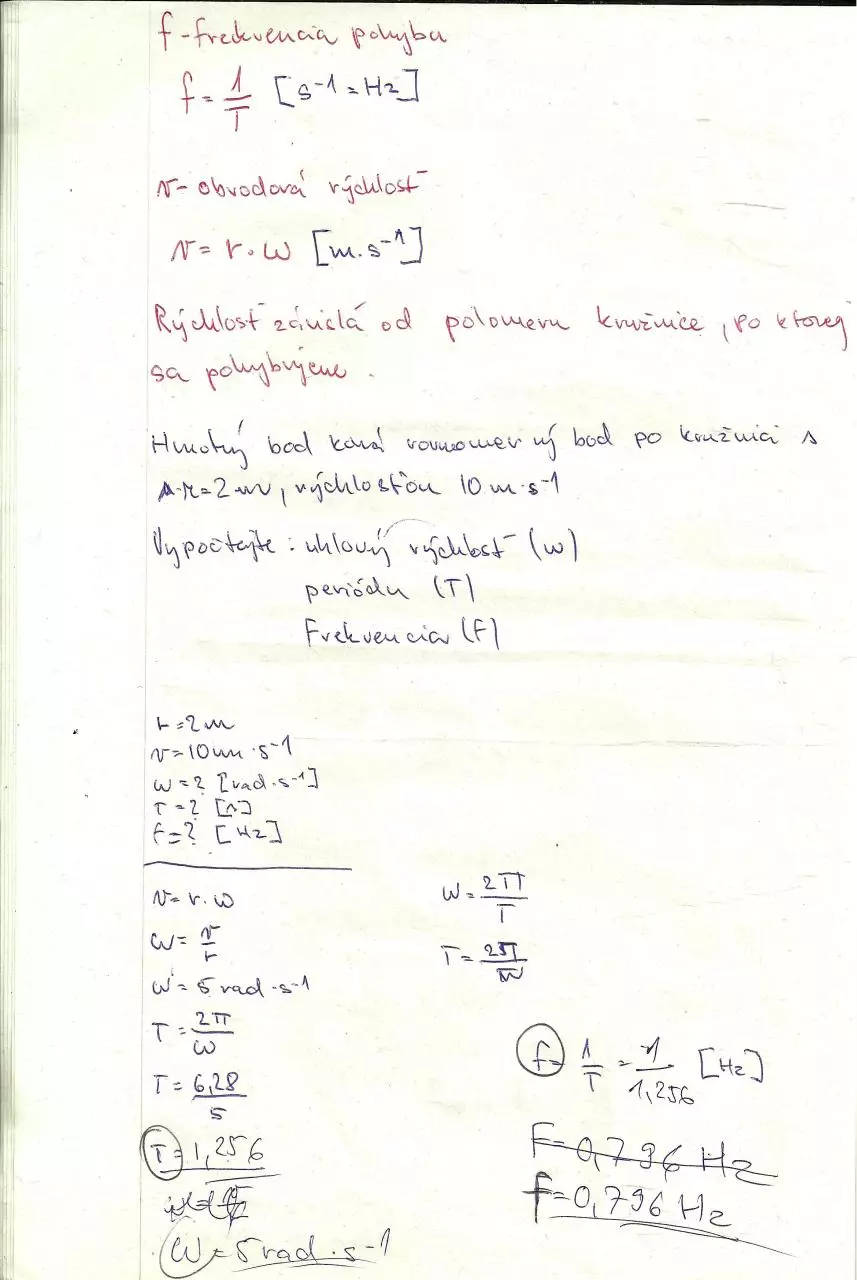 f-frekvencia pohybu
f = 1/T [s⁻¹ = Hz]
v - obvodová rýchlosť
v = r · ω [m·s⁻¹]
Rýchlosť závislá od polomeru kružnice, po ktorej
sa pohybujeme.
Hmotný bod koná rovnomerný bod po kružnici s
r=2m, rýchlosťou 10 m·s⁻¹
Vypočítajte: uhlový rýchlosť (ω)
periódu (T)
Frekvencia (F)
r = 2 m
v = 10 m·s⁻¹
ω = ? [rad·s⁻¹]
T = ? [s]
f = ? [Hz]
v = r·ω
ω = v/r
ω = 5 rad·s⁻¹
T = 2π/ω
T = 6,28/5
T = 1,256
ω = 5 rad·s⁻¹
ω = 2π/T
T = 2π/ω
f = 1/T = 1/1,256 [Hz]
F = 0,796 Hz
f = 0,796 Hz